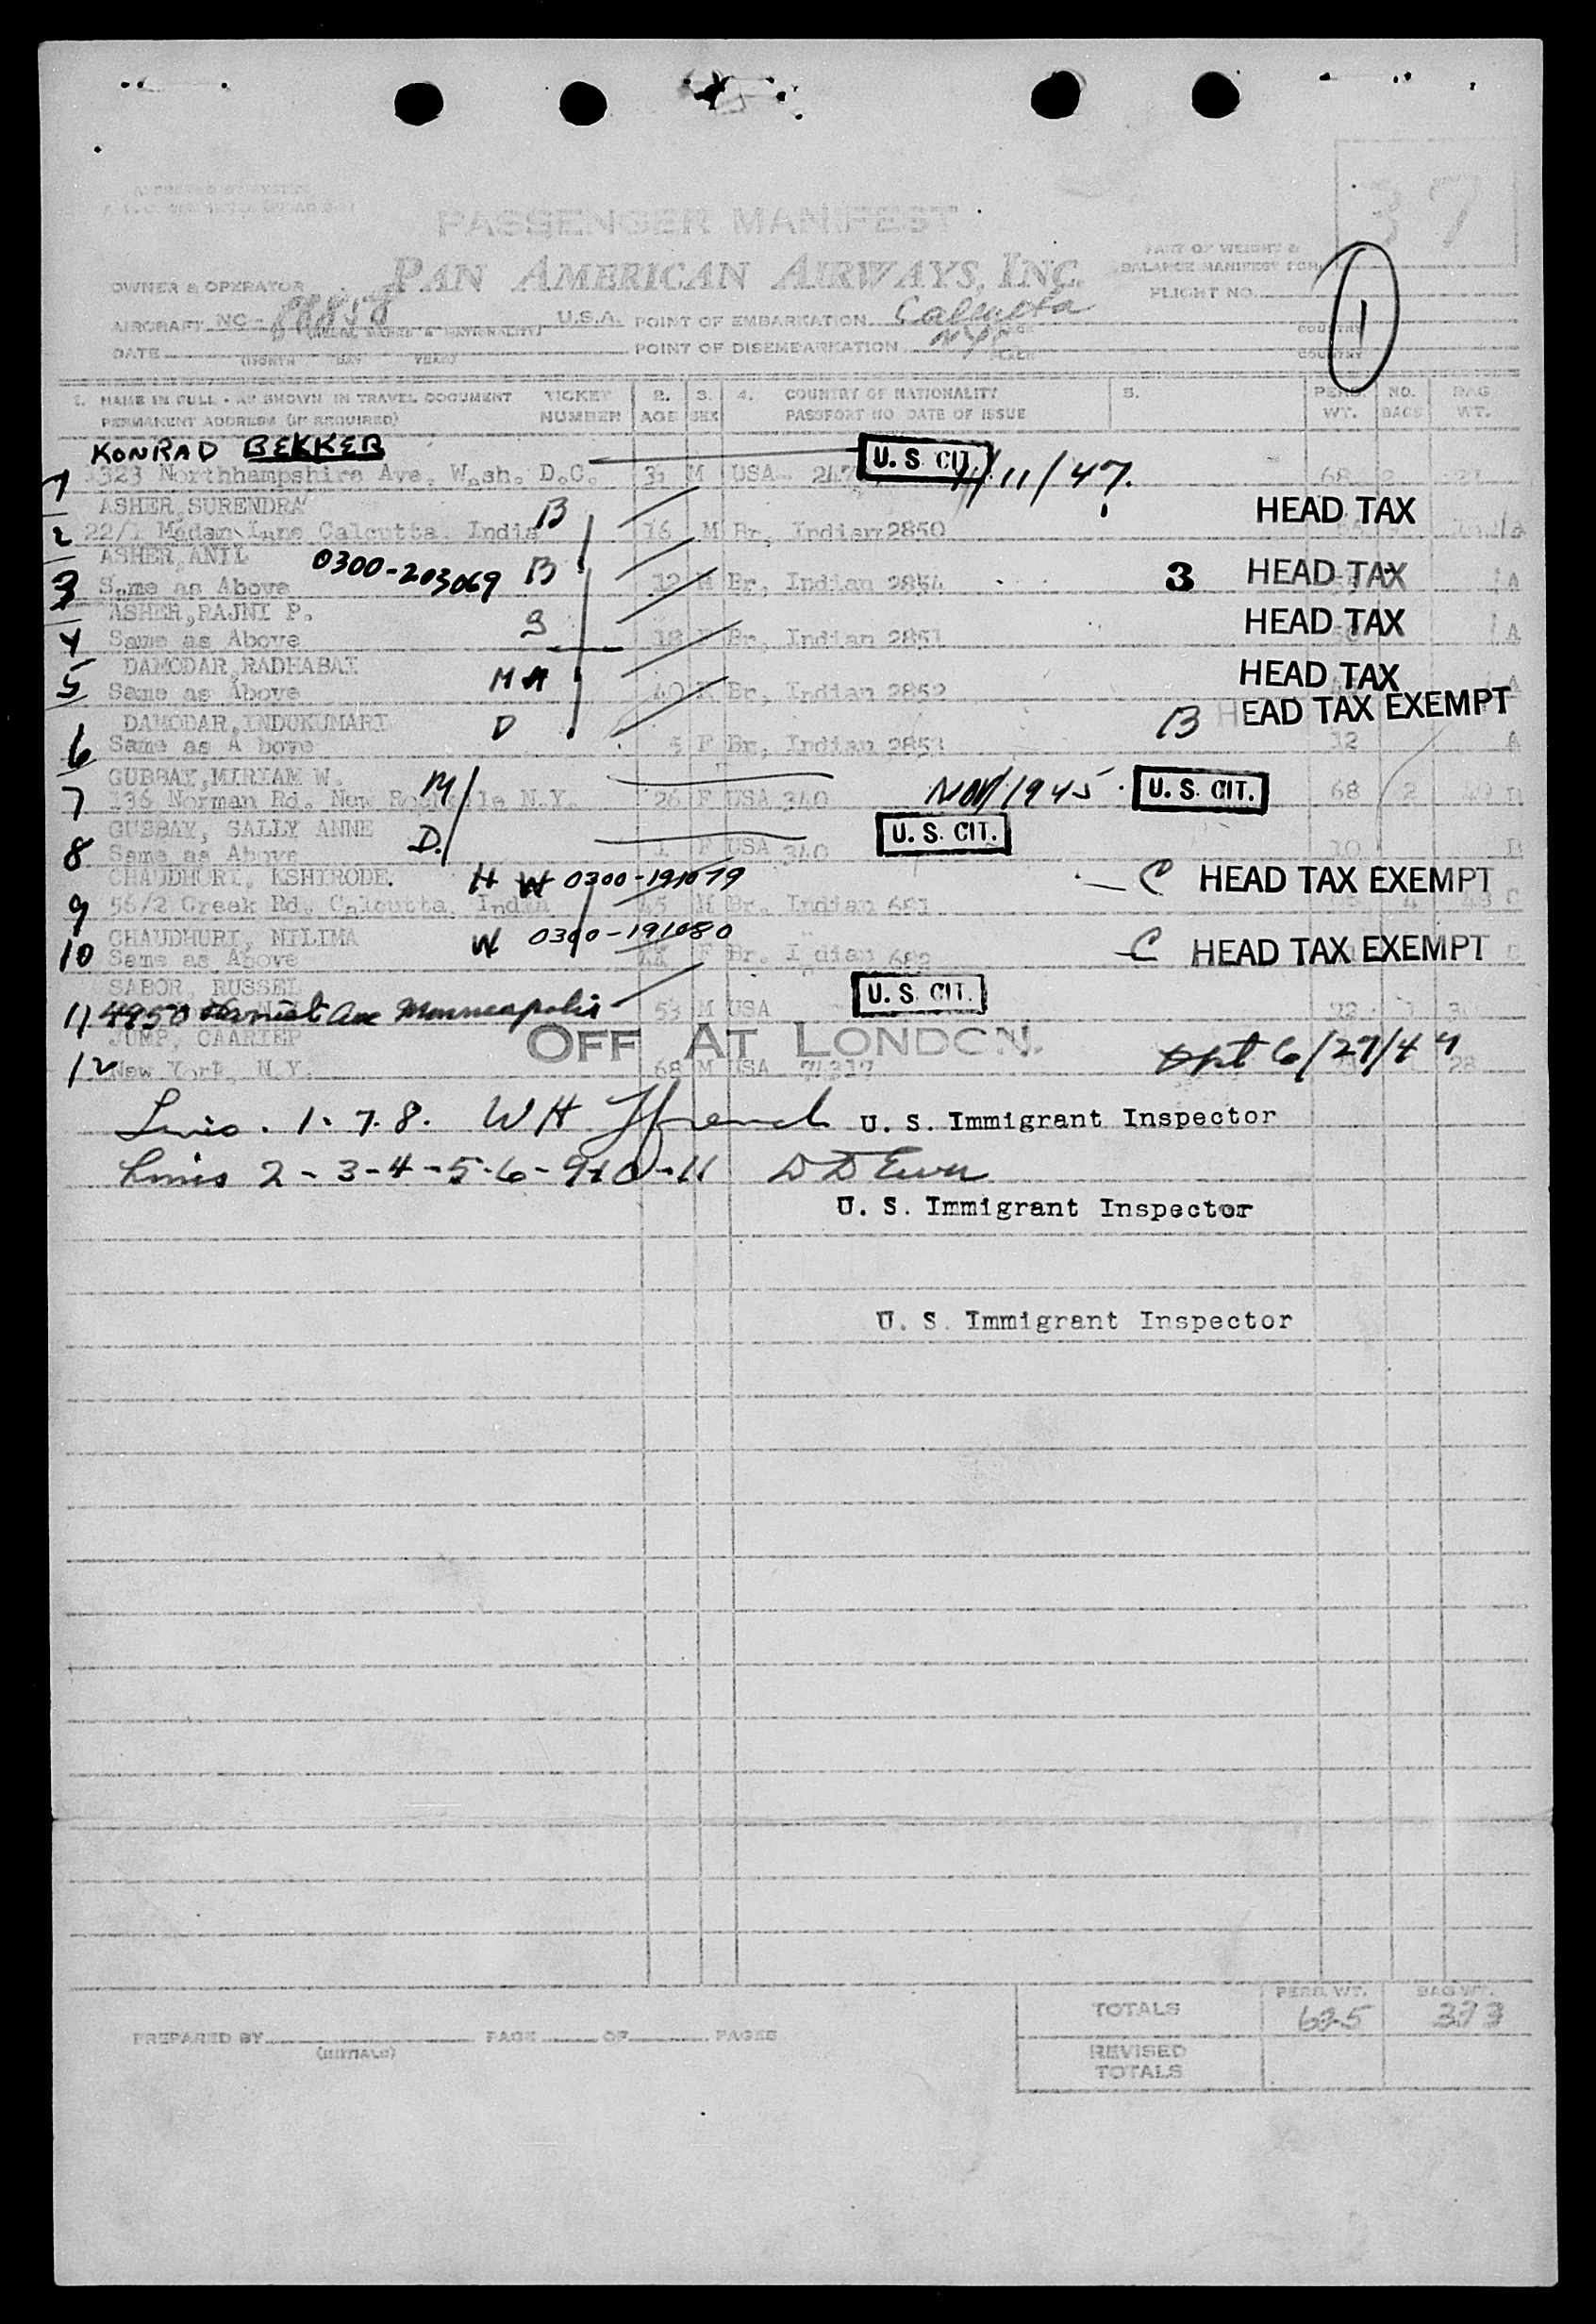 37
PASSENGER MANIFEST
PART OF WEIGHT &
BALANCE MANIFEST FOR
OWNER & OPERATOR PAN AMERICAN AIRWAYS, INC.
FLIGHT NO. 1
AIRCRAFT NC- 88858 U.S.A. POINT OF EMBARKATION Calcutta COUNTRY
DATE (MONTH DAY YEAR) POINT OF DISEMBARKATION NYC COUNTRY
1. NAME IN FULL - AS SHOWN IN TRAVEL DOCUMENT TICKET 2. 3. 4. COUNTRY OF NATIONALITY 5. PERS. NO. BAG
PERMANENT ADDRESS (IF REQUIRED) NUMBER AGE SEX PASSPORT NO DATE OF ISSUE WT. BAGS WT.
KONRAD BEKKER
1 323 Northhampshire Ave. Wash. D.C. 31 M USA- U. S. CIT. 11/47. 68 2
ASHER, SURENDRA B HEAD TAX
2 22/1 Madan Lane Calcutta, India 16 M Br, Indian 2850
ASHER, ANIL 0300-203069 B 3 HEAD TAX
3 Same as Above 12 M Br, Indian 2854 A
ASHER, RAJNI P. S HEAD TAX
4 Same as Above 18 F Br, Indian 2851 A
DAMODAR, RADHABAI HEAD TAX
5 Same as Above 40 F Br, Indian 2852 A
DAMODAR, INDUKUMARI D B HEAD TAX EXEMPT
6 Same as A bove 5 F Br, Indian 2853 12 A
GUBBAY, MIRIAM W. M
7 236 Norman Rd. New Rochelle N.Y. 26 F USA 340 Nov/1945. U. S. CIT. 68 2 49 B
GUBBAY, SALLY ANNE D. U. S. CIT.
8 Same as Above 1 F USA 340 10 B
CHAUDHURI, KSHIRODE. H W 0300-191079 C HEAD TAX EXEMPT
9 56/2 Creek Rd. Calcutta, India 45 M Br. Indian 681 4 48 C
CHAUDHURI, NILIMA W 0300-191080 C HEAD TAX EXEMPT
10 Same as Above F Br. Indian 682 C
SABOR, RUSSEL U. S. CIT.
11 4950 Harriet Ave Minneapolis 53 M USA
JUMP, CAARTER OFF AT LONDON.
12 New York, N.Y. 68 M USA 74317 6/27/47 28
1. 7. 8. WH Ffrench U. S. Immigrant Inspector
Lines 2-3-4-5-6-9-10-11 D D Ewen
U. S. Immigrant Inspector
U. S. Immigrant Inspector
PREPARED BY (INITIALS) PAGE OF PAGES
TOTALS PERS. WT. 625 BAG WT. 373
REVISED
TOTALS